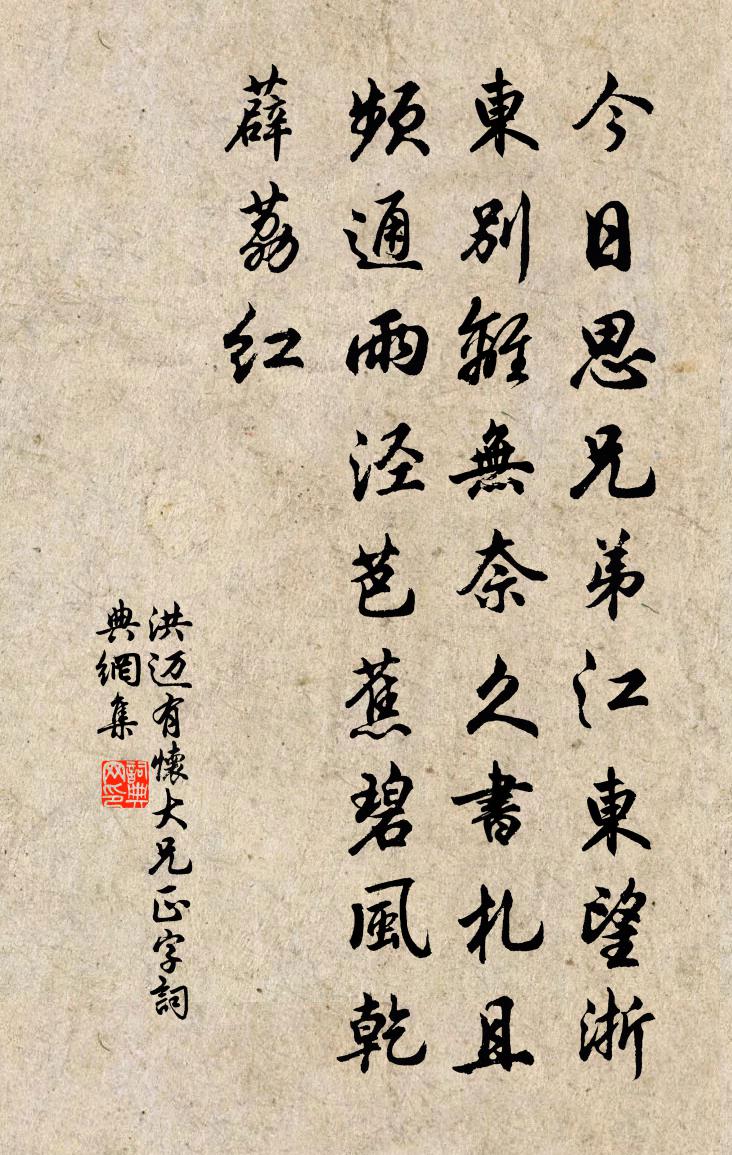 今日思兄弟江東望浙
東別離無奈久書札且
頻通雨泾芭蕉碧風乾
薜荔红
洪迈有懷大兄正字詞
典網集
詞典网印